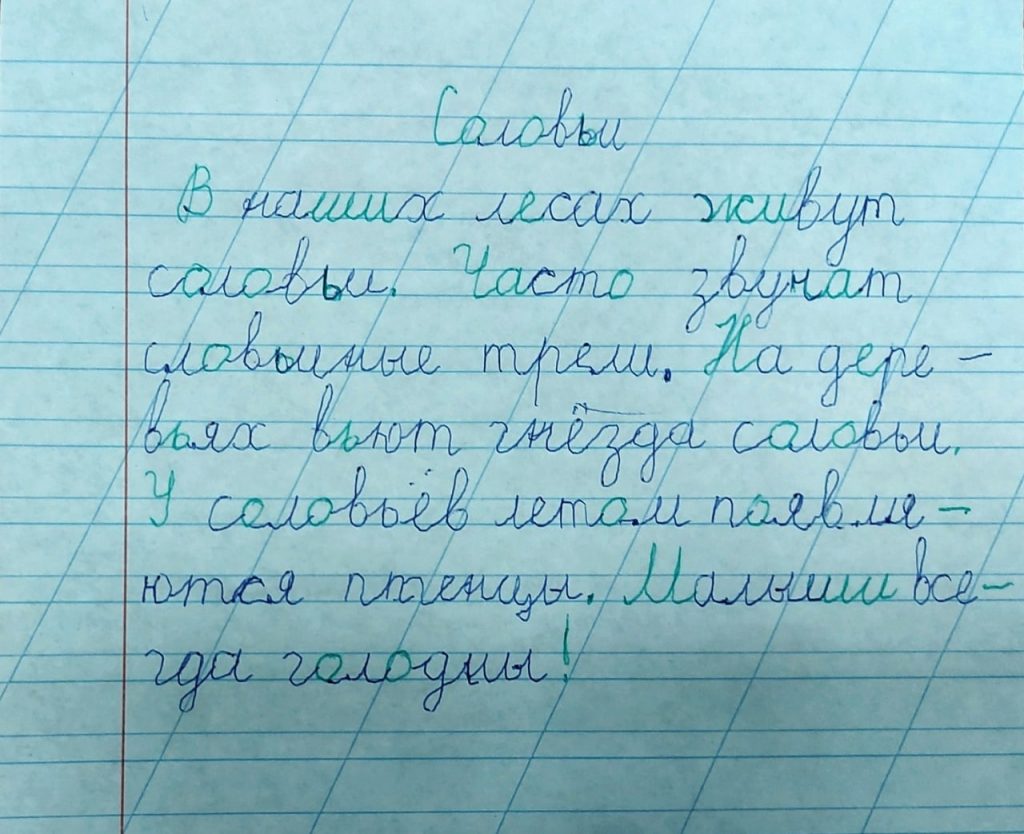 Соловьи
В наших лесах живут
соловьи. Часто звучат
словьиные трели. На дере-
вьях вьют гнёзда соловьи.
У соловьёв летом появля-
ются птенцы. Малыши все-
гда голодны!